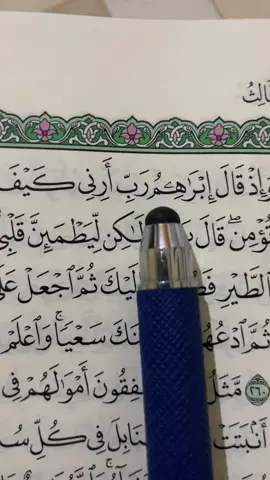 الِثُ
وَإِذْ قَالَ إِبْرَٰهِـۧمُ رَبِّ أَرِنِى كَيْفَ
تُؤْمِن ۖ قَالَ لَٰكِن لِّيَطْمَئِنَّ قَلْبِى
ٱلطَّيْرِ إِلَيْكَ ثُمَّ ٱجْعَلْ عَلَىٰ
ثُمَّ ٱدْعُهُ نَكَ سَعْيًا ۚ وَٱعْلَمْ
٢٦٠ مَّثَلُ يُنفِقُونَ أَمْوَٰلَهُمْ فِى
أَنۢبَتَتْ نَابِلَ فِى كُلِّ سُ